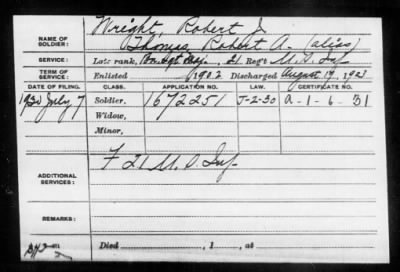 NAME OF SOLDIER: Wright, Robert J.
Thomas, Robert A. (alias)
SERVICE: Late rank, Sgt 21 Reg't U.S. Inf
TERM OF SERVICE: Enlisted 1902 Discharged August 17, 1921
DATE OF FILING. CLASS. APPLICATION NO. LAW. CERTIFICATE NO.
1930 July 7 Soldier, 1672251 J-2-30 A-1-6-31
Widow,
Minor,
ADDITIONAL SERVICES: F 21 U.S. Inf.
REMARKS:
Died , 1 , at